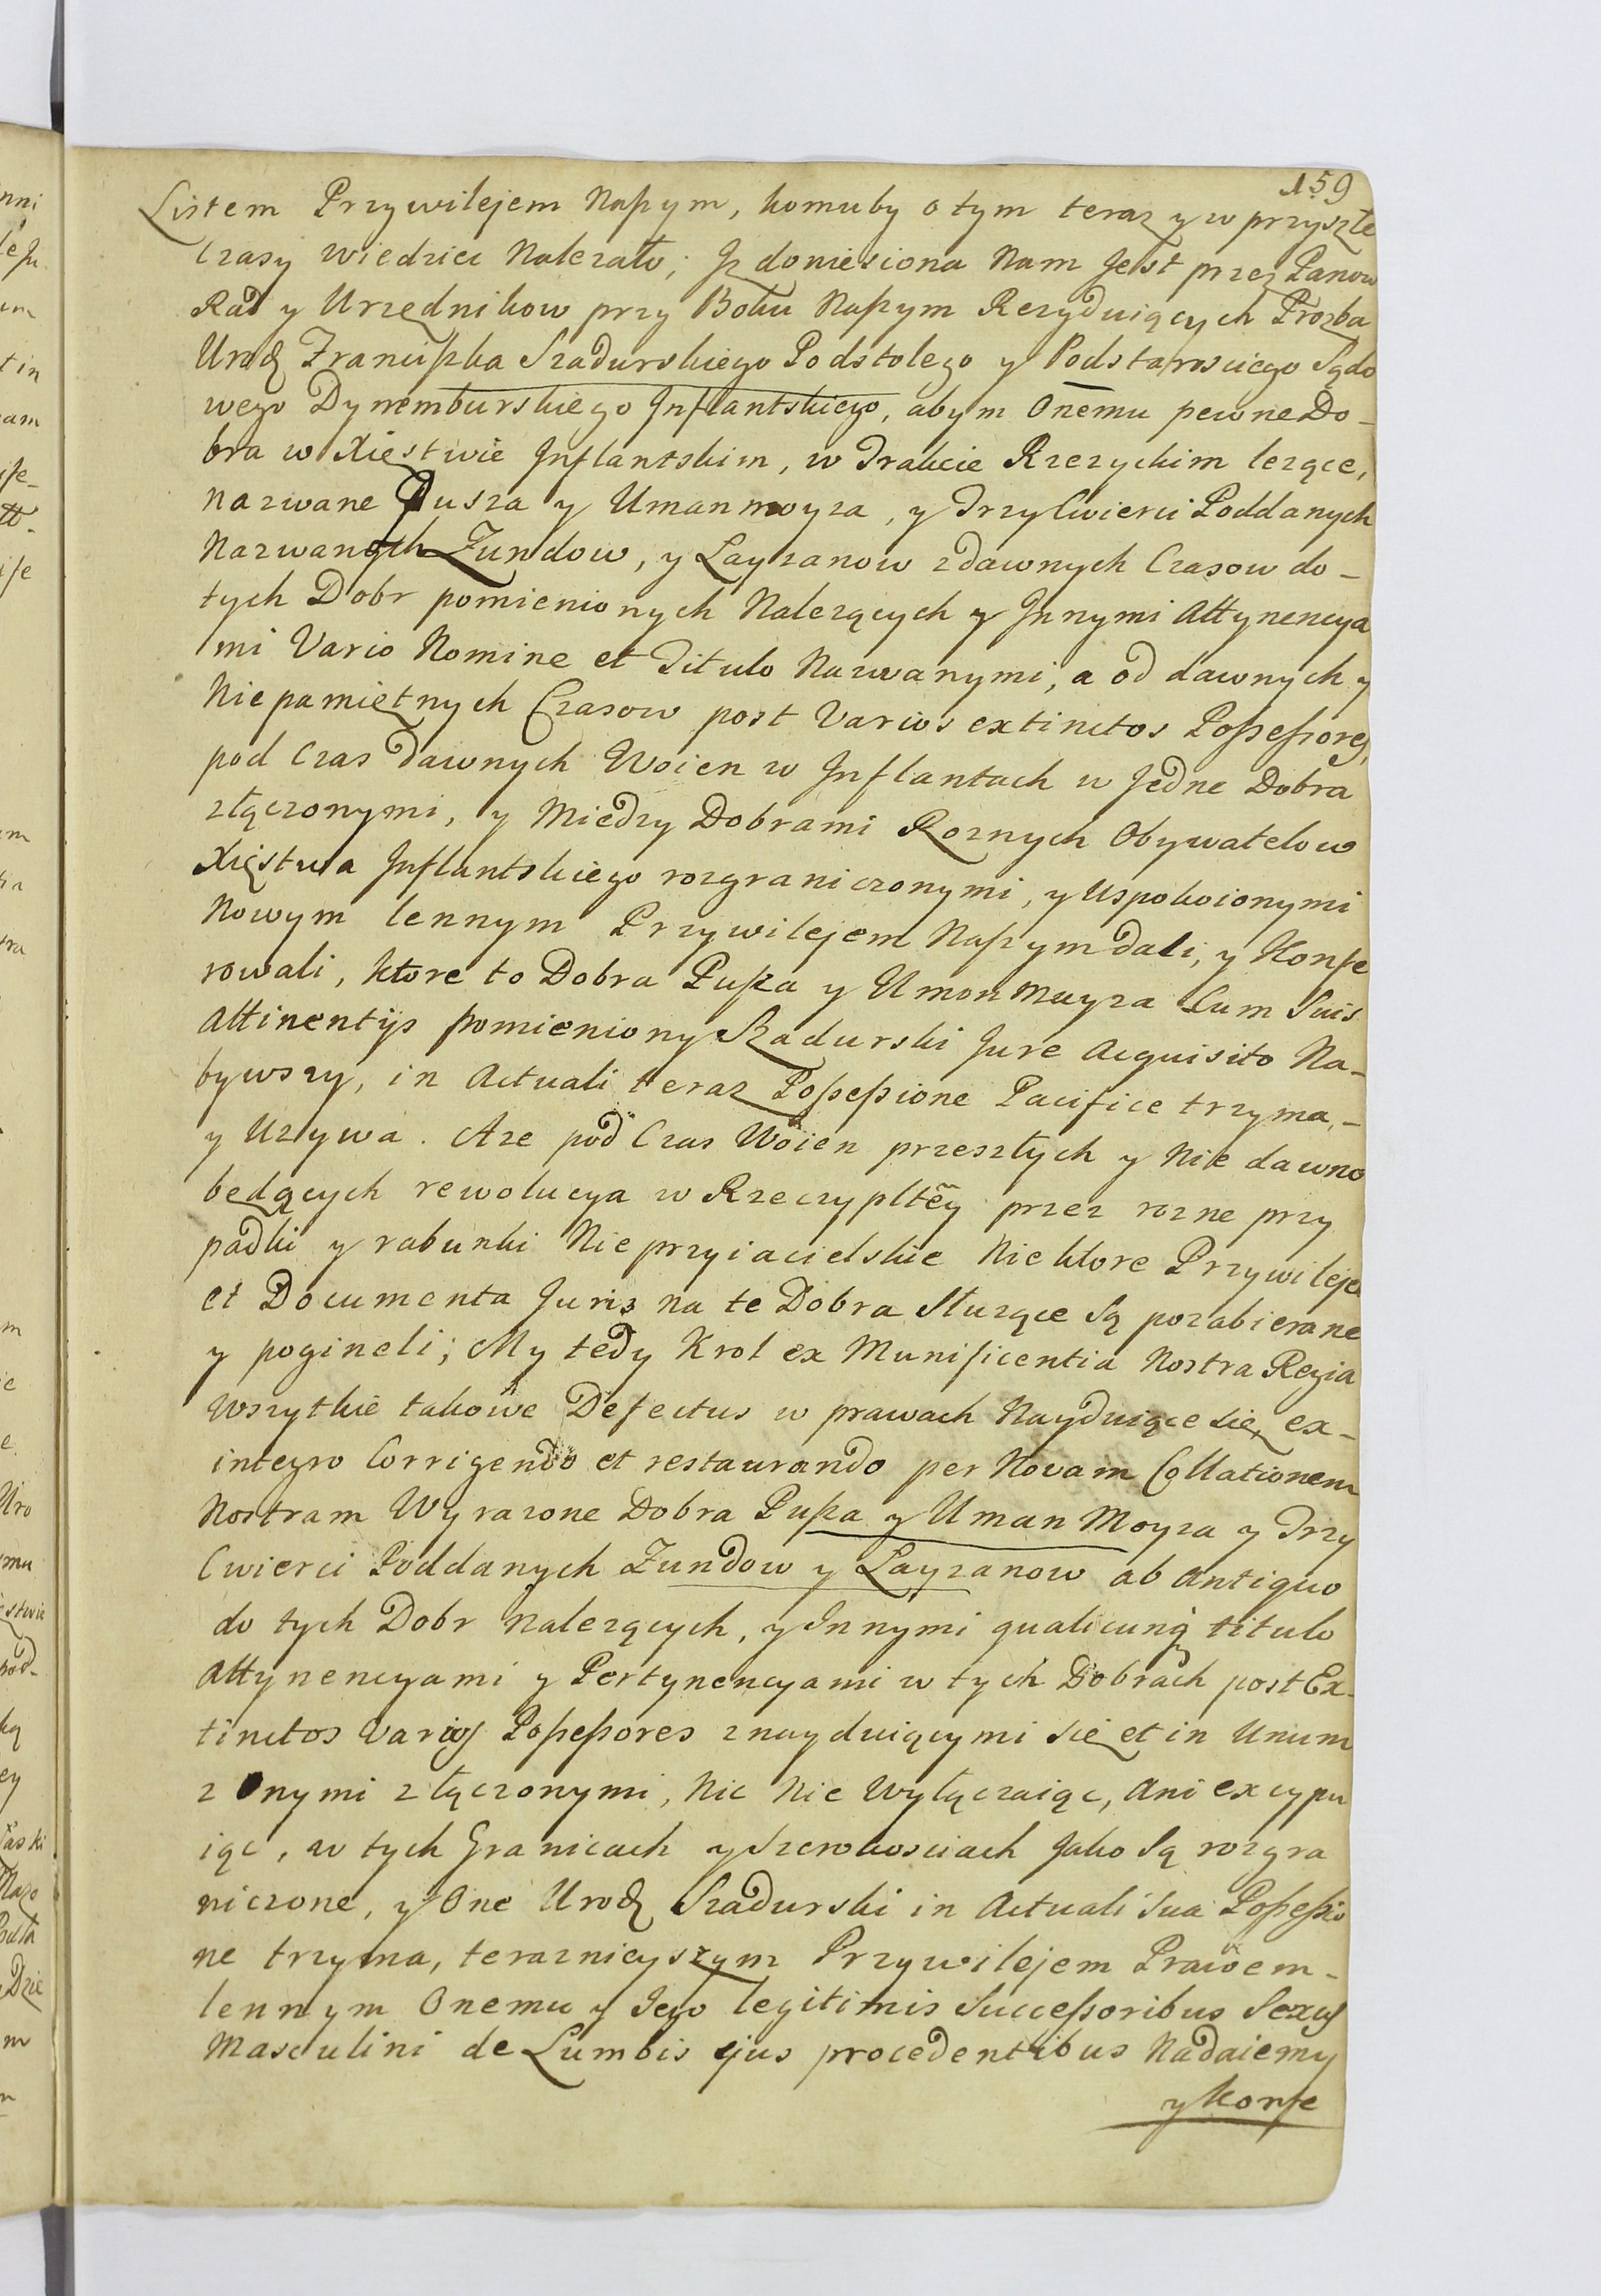 159
Listem Przywilejem Naszym, komuby o tym teraz y w przyszłe
Czasy wiedziec Nalezało; Jz doniesiona Nam Jest przez Panow
Rad y Urzędnikow przy Boku Naszym Rezyduiących Prozba
Urodz Franciszka Szadurskiego Podstolego y Podstarosciego Sądo
wego Dynemburskiego Jnflantskiego, abym Onemu pewne Do-
bra w Xięstwie Jnflantskim, w Trakcie Rzezyckim lezące,
nazwane Pusza y Umanmoyza, y Trzy Cwierci Poddanych
Nazwanych Zundow, y Layzanow zdawnych Czasow do-
tych Dobr pomienionych Nalezących y Jnnymi Attynencya
mi Vario Nomine et Titulo Nazwanymi, a od dawnych y
Niepamiętnych Czasow post Varios extinctos Possessores,
pod Czas dawnych Woien w Jnflantach w Jedne Dobra
złączonymi, y Miedzy Dobrami Roznych Obywatelow
Xięstwa Jnflantskiego rozgraniczonymi, y Uspokoionymi
Nowym lennym Przywilejem Naszym dali, y Konfe
rowali, ktore to Dobra Pusza y Umonmuyza Cum Suis
Attinentijs pomieniony Szadurski Jure Acquisito Na-
bywszy, in Actuali teraz Possessione Pacifice trzyma,-
y Uzywa. Aze pod Czas Woien przeszłych y Nie dawno
będących rewolucya w Rzeczypltey przez rozne przy
padki y rabunki Nieprzyiacielskie Niektore Przywileje
et Documenta Juris na te Dobra Słuzące Są pozabierane
y pogineli; My tedy Krol ex Munificentia Nostra Regia
Wszytkie takowe Defectus w prawach Nayduiące się, ex-
integro Corrigendo et restaurando per Novam Collationem
Nostram Wyrazone Dobra Pusza y Uman Moyza y Trzy
Cwierci Poddanych Zundow y Layzanow ab antiquo
do tych Dobr nalezących, y Jnnymi qualicunq titulo
Attynencyami y Pertynencyami w tych Dobrach post Ex-
tinctos Varios Possessores znayduiącymi się et in Unum
z Onymi złączonymi, Nic Nie Wyłączaiąc, Ani excypu
iąc, w tych Granicach y Szerokosciach Jako Są rozgra
niczone, y One Urodz Szadurski in Actuali Sua Possessio
ne trzyma, teraznieyszym Przywilejem Prawem-
lennym Onemu y Jego legitimis Successoribus Sexus
Masculini de Lumbis ejus procedentibus Nadaiemy
y Konfe